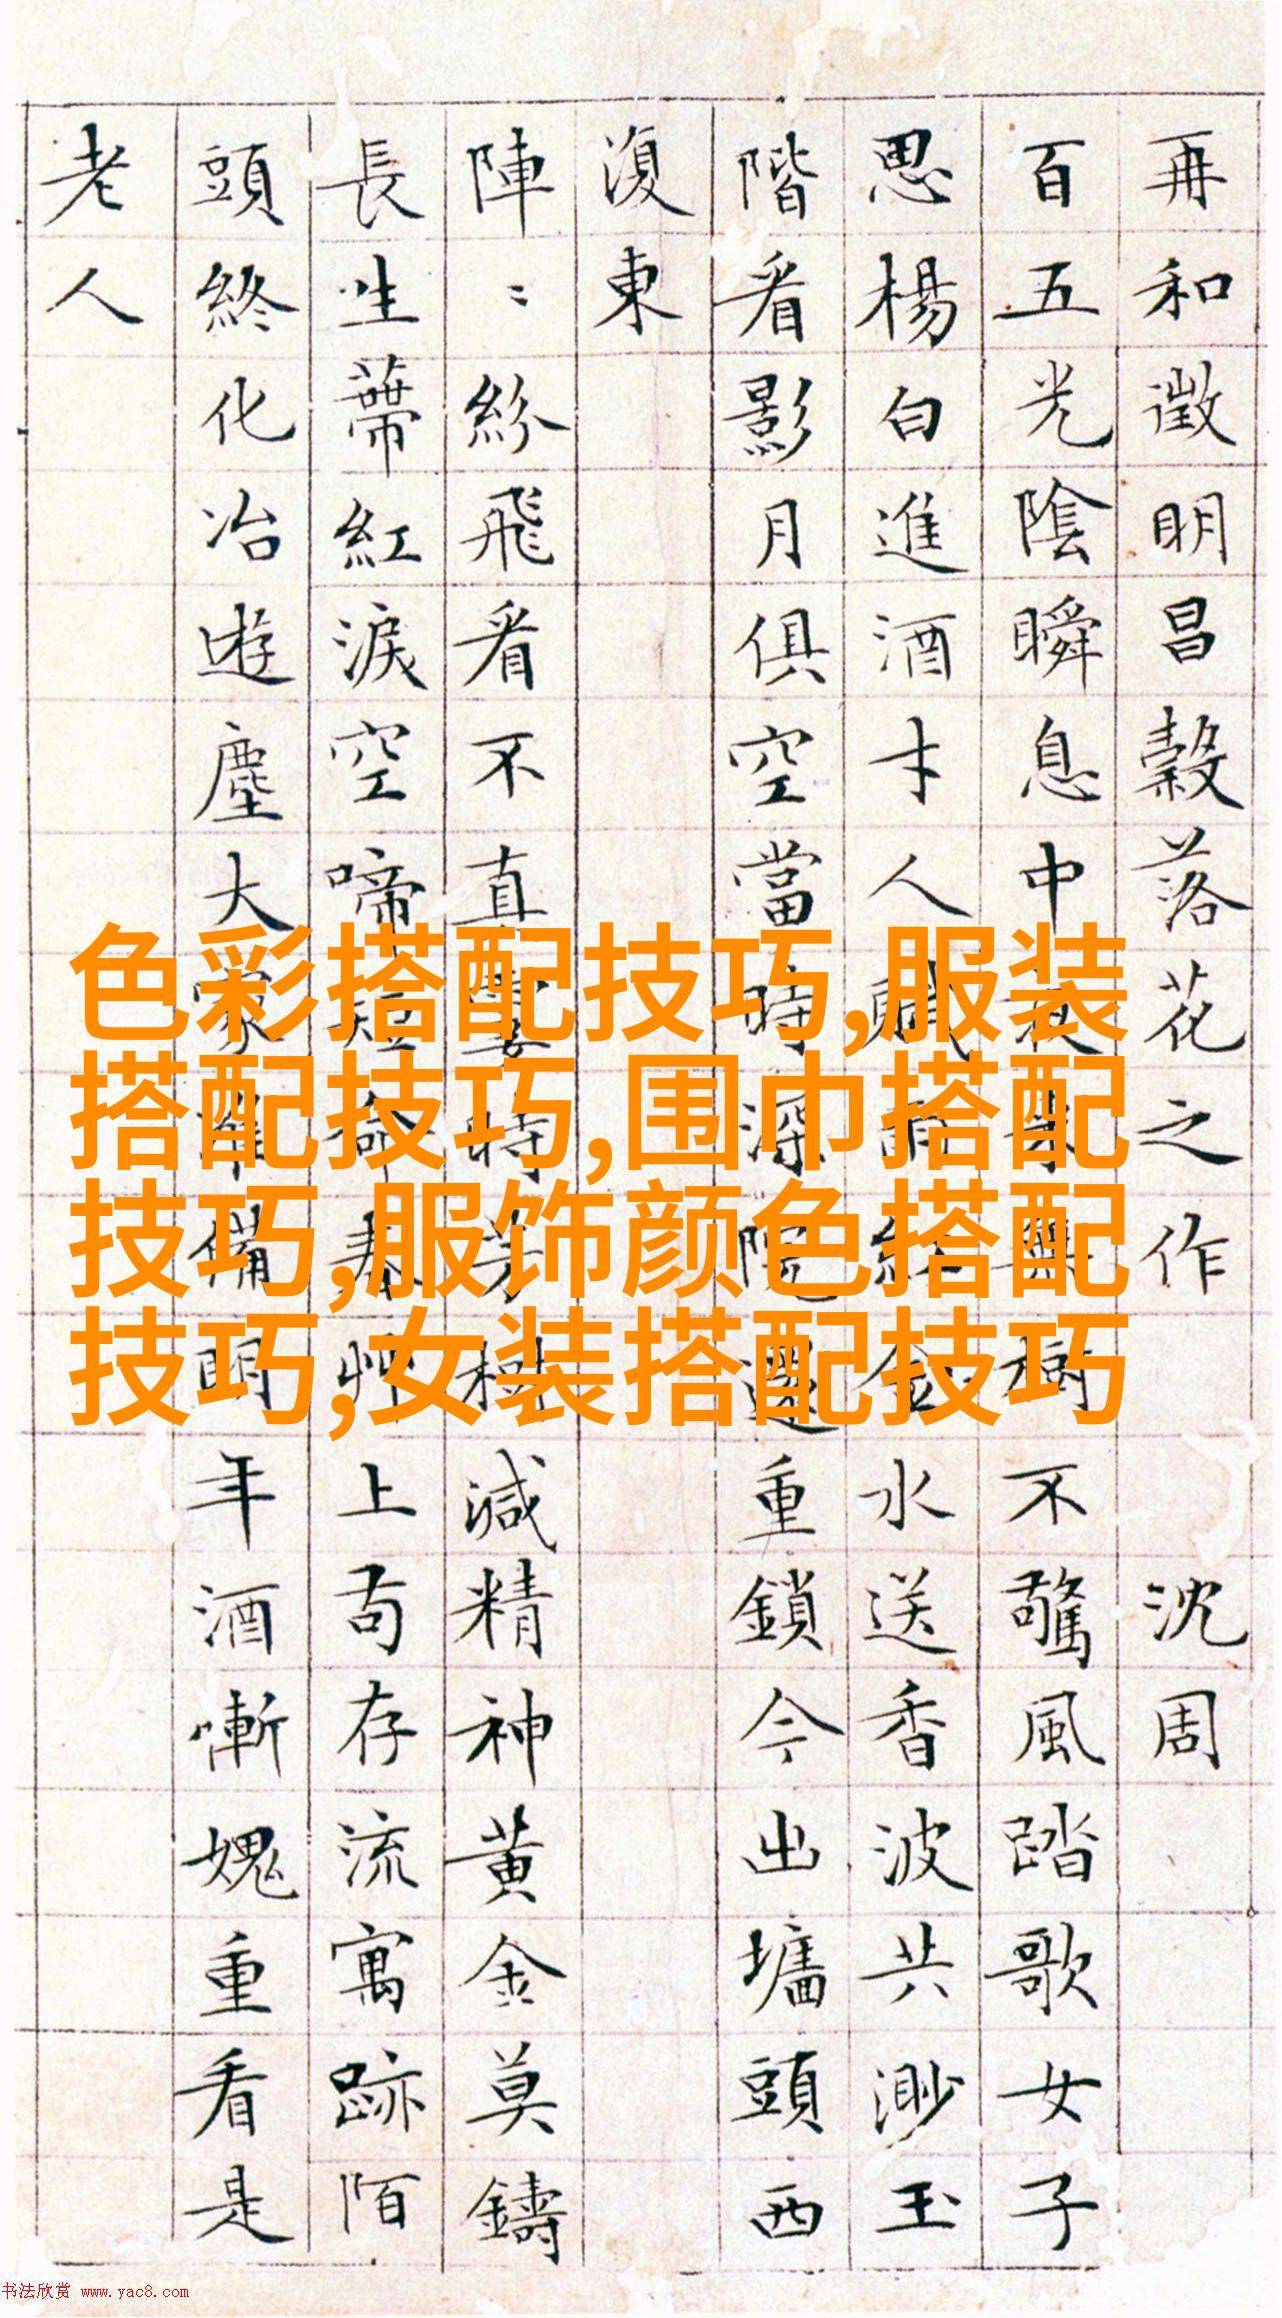 再和徵明昌穀落花之作 沈周
百五光陰瞬息中夜來無樹不驚風踏歌女子
思楊白進酒才人賦紅金水送香波共渺玉
階看影月俱空當時深院還重鎖今出墻頭西
復東
陣〻紛飛看不真霎時芳樹減精神黃金莫鑄
長生蒂紅淚空啼短命春艸上苟存流寓跡陌
頭終化冶遊塵大家準備明年酒慚媿重看是
老人
色彩搭配技巧,服装
搭配技巧,围巾搭配
技巧,服饰颜色搭配
技巧,女装搭配技巧
书法欣赏 www.yac8.com